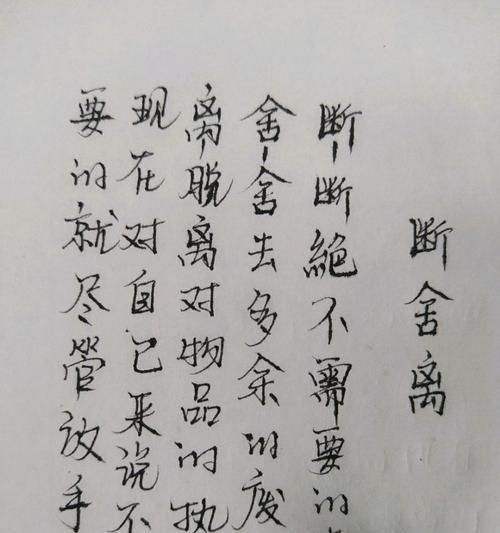 断舍离
断-断絕不需要的
舍-舍去多余的废
离脱离对物品的执
现在对自己来说不
要的就尽管放手